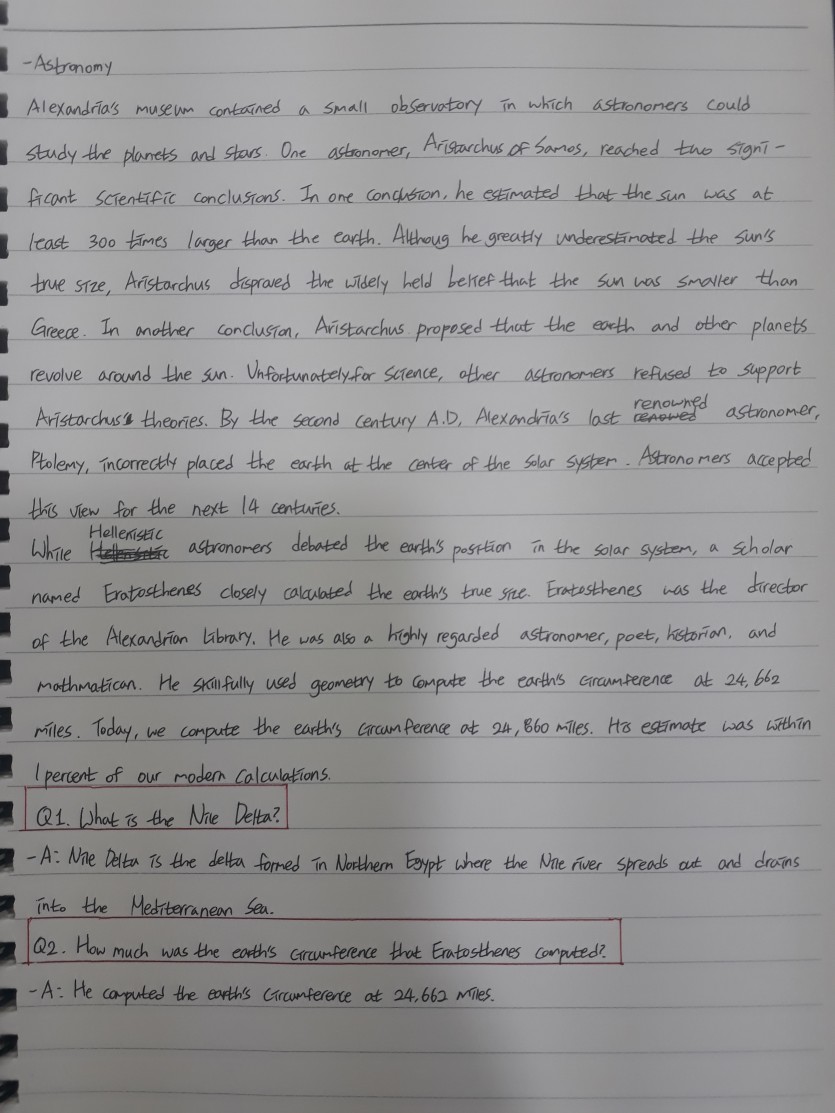 -Astronomy
Alexandria's museum contained a small observatory in which astronomers could
study the planets and stars. One astronomer, Aristarchus of Samos, reached two signi-
ficant scientific conclusions. In one conclusion, he estimated that the sun was at
least 300 times larger than the earth. Althoug he greatly underestimated the sun's
true size, Aristarchus disproved the widely held belief that the sun was smaller than
Greece. In another conclusion, Aristarchus proposed that the earth and other planets
revolve around the sun. Unfortunately for science, other astronomers refused to support
Aristarchus's theories. By the second century A.D, Alexandria's last renowned astronomer,
Ptolemy, incorrectly placed the earth at the center of the solar system. Astronomers accepted
this view for the next 14 centuries.
While Hellenistic astronomers debated the earth's position in the solar system, a scholar
named Eratosthenes closely calculated the earth's true size. Eratosthenes was the director
of the Alexandrian Library. He was also a highly regarded astronomer, poet, historian, and
mathmatican. He skillfully used geometry to compute the earth's circumference at 24,662
miles. Today, we compute the earth's circumference at 24,860 miles. His estimate was within
1 percent of our modern calculations.
Q1. What is the Nile Delta?
-A: Nile Delta is the delta formed in Northern Egypt where the Nile river spreads out and drains
into the Mediterranean Sea.
Q2. How much was the earth's circumference that Eratosthenes computed?
-A: He computed the earth's circumference at 24,662 miles.